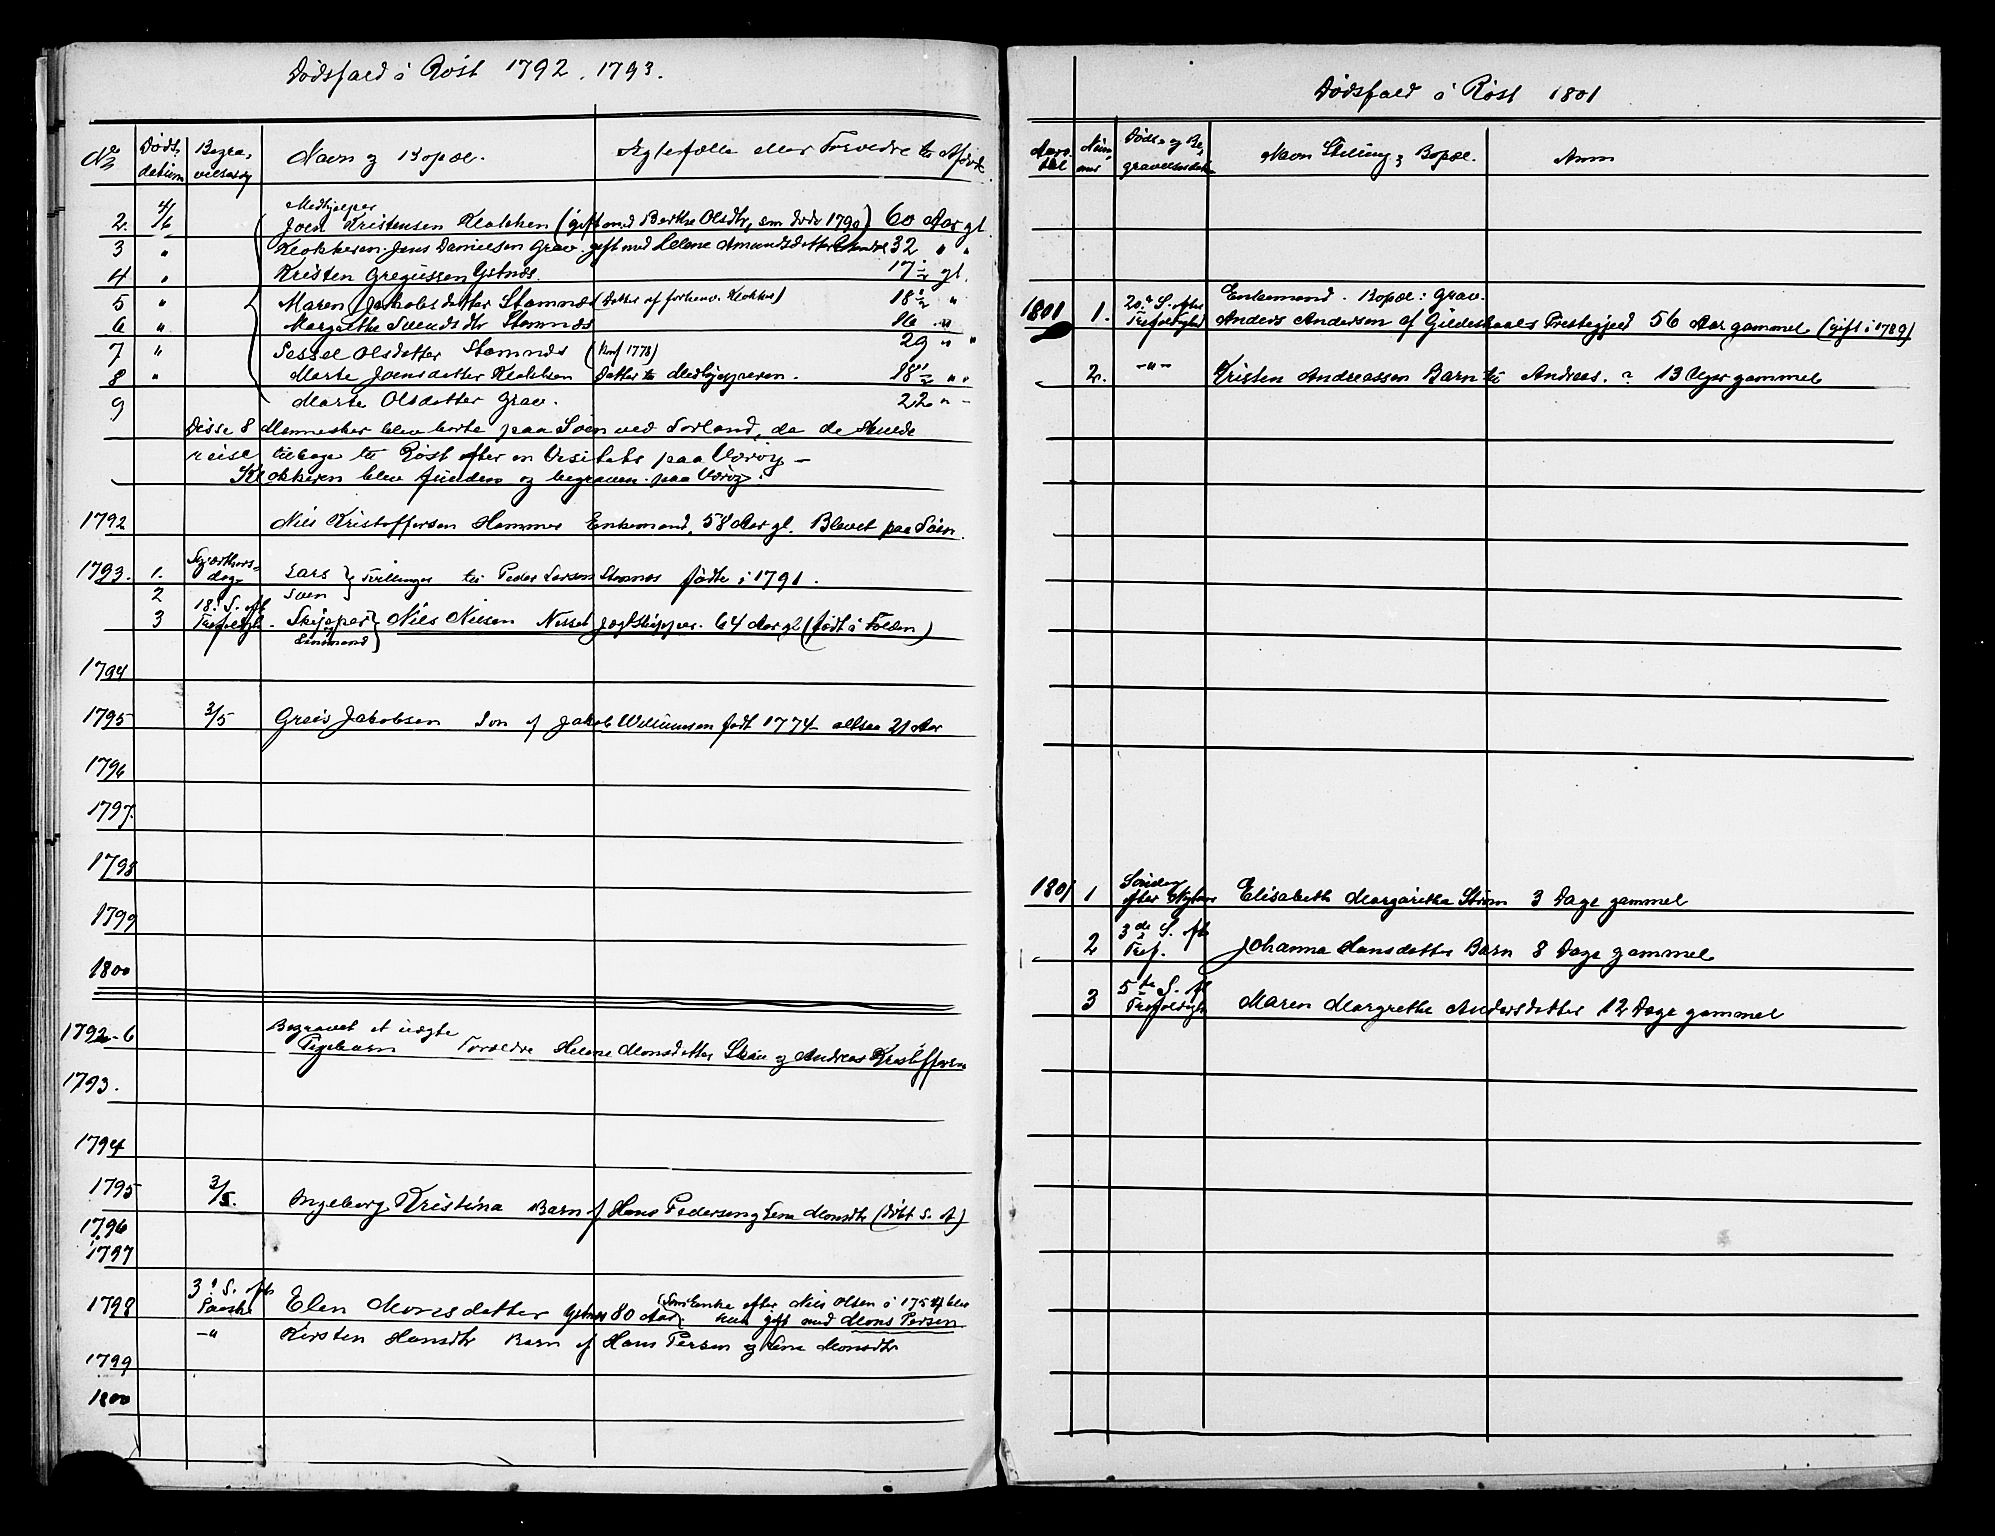 Dødsfald i Røst 1792. 1793.
No Døds datum Begra- velsesdag Navn og Bopæl. Ægtefælle eller Forældre til Afdøde
Medhjelper
2. 4/6 Joen Kristensen Klakken (gift med Berthe Olsdtr, som døde 1790) 60 Aar gl.
3 " Klokkeren Jens Danielsen Grav gift med Helene Amundsdatter 32 " "
4 " Kristen Gregussen Ystnæs. 17 1/2 gl.
5 " Maren Jakobsdatter Stamnæs (Datter af forhenv. Klokker) 18 1/2 "
6 " Margrethe Svendsdtr Stamnæs 16 "
7 " Sessel Olsdatter Stamnæs (Konf 1778) 29 " "
8 " Marte Joensdatter Klakken Datter til Medhjelperen. 18 1/2 " "
9 Marte Olsdatter Grav. 22 " -
Disse 8 Mennesker blev borte paa Søen ved Sorland, da de skulde
reise tilbage til Røst efter en Visitats paa Værøy -
Klokkeren blev funden og begraven paa Værøy.
1792 Niels Kristoffersen Hammer Enkemand, 58 Aar gl. Blevet paa Søen.
1793. 1. Skjærthors- dag Lars } Tvillinger til Peder Larsen Stamnæs fødte i 1791.
2 Sven
3 18. S. eft Trefoldigh. Skipper og Enkemand } Niels Nielsen Nesset Jagtskipper. 64 Aar gl (født i Folden)
1794
1795 3/5 Greis Jakobsen Søn af Jakob Willumsen født 1774 altsaa 21 Aar
1796
1797.
1798
1799
1800
1792-6 Begravet et uægte
Pigebarn Forældre Helene Monsdatter og Andreas Kristoffersen
1793.
1794
1795 3/5. Ingeborg Kristina Barn af Hans Pedersen og Lena Monsdtr (døbt S. A)
1796
1797
1798 3. S. eft Paaske Elen Monsdatter Ystnæs 80 Aar. (Som Enke efter Niels Olsen i 1754 blev
hun gift med Mons Persen
-" Kirsten Hansdtr Barn af Hans Persen og Lena Monsdtr
1799
1800
Dødsfald i Røst 1801
Aars- tal Num- mer Døds- og Be- gravelsesdat. Navn Stilling og Bopæl. Anm
1801 1. 20. S. efter Trefoldighed Enkemand. Bopæl: Grav.
Anders Andersen af Gildeskaals Prestegjeld 56 Aar gammel (gift i 1789)
2. -"- Kristen Andreassen Barn til Andreas. ? 13 Uger gammel
1801 1 Søndag efter Nytaar Elisabeth Margaretha Strøm 3 Dage gammel
2 3de S. eft Tref. Johanna Hansdatter Barn 8 Dage gammel
3 5te S. eft Trefoldigh Maren Margrethe Andersdatter 12 Dage gammel